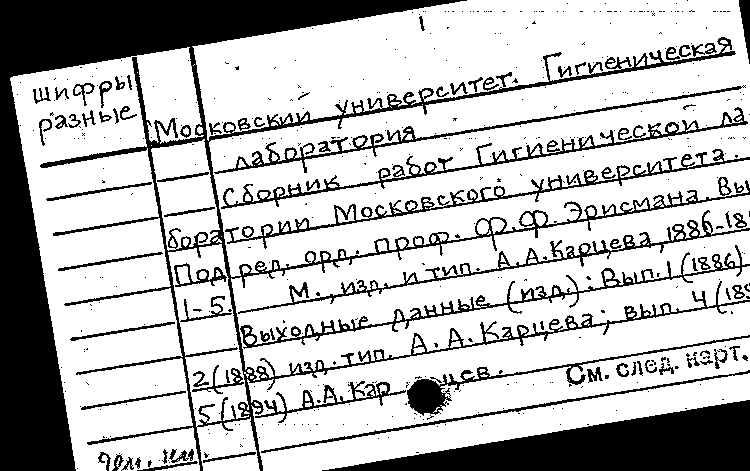 Шифры
разные
Московский университет. Гигиеническая
лаборатория
Сборник работ Гигиенической ла
боратории Московского университета.
Под ред. орд. проф. Ф.Ф. Эрисмана. Вы
1-5. М., изд. и тип. А.А.Карцева, 1886-18
Выходные данные (изд.): Вып. 1 (1886)
2 (1888) изд. тип. А.А.Карцева; вып. 4 (189
5 (1894) А.А.Кар цев.
См. след. карт.